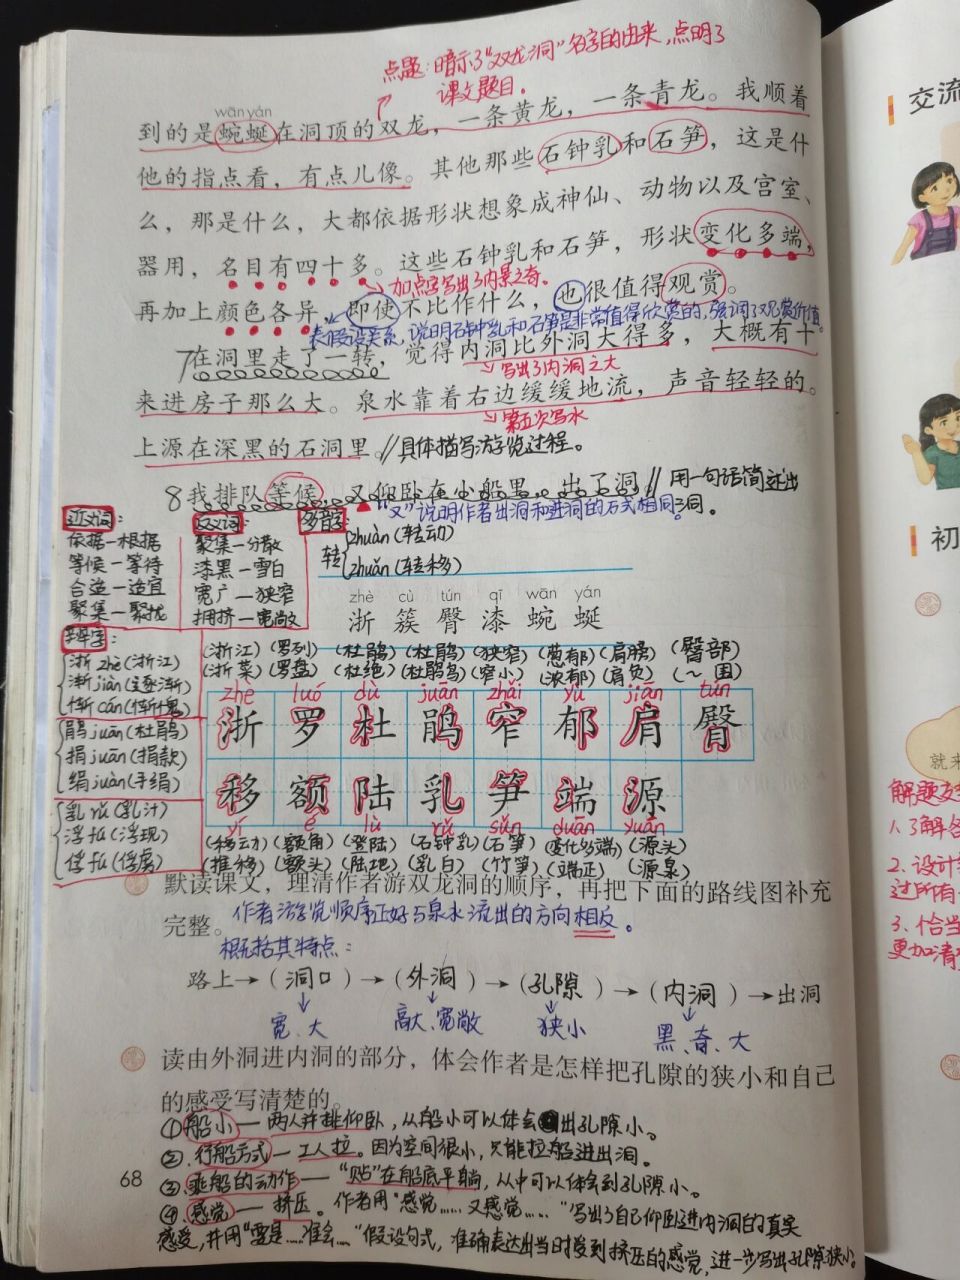 点题：暗示了“双龙洞”名字的由来，点明了
课文题目。
wān yán
到的是蜿蜒在洞顶的双龙，一条黄龙，一条青龙。我顺着
他的指点看，有点儿像。其他那些石钟乳和石笋，这是什
么，那是什么，大都依据形状想象成神仙、动物以及宫室、
器用，名目有四十多。这些石钟乳和石笋，形状变化多端，
加点字写出了内景之奇。
再加上颜色各异，即使不比作什么，也很值得观赏。
表假设关系，说明石钟乳和石笋是非常值得欣赏的，强调了观赏价值。
7在洞里走了一转，觉得内洞比外洞大得多，大概有十
写出了内洞之大
来进房子那么大。泉水靠着右边缓缓地流，声音轻轻的。
第五次写水
上源在深黑的石洞里。//具体描写游览过程。
8我排队等候，又仰卧在小船里，出了洞。//用一句话简述出洞。
“又”说明作者出洞和进洞的方式相同。
近义词：
依据—根据
等候—等待
合适—适宜
聚集—聚拢
反义词：
聚集—分散
漆黑—雪白
宽广—狭窄
拥挤—宽敞
多音字
转 zhuàn(转动)
zhuǎn(转移)
zhè cù tún qī wān yán
浙 簇 臀 漆 蜿 蜒
辨字：
浙 zhè(浙江)
渐jiàn(逐渐)
惭cán(惭愧)
鹃juān(杜鹃)
捐juān(捐款)
绢juàn(手绢)
乳rǔ(乳汁)
浮fú(浮现)
俘fú(俘虏)
(浙江)(罗列)(杜鹃)(杜鹃)(狭窄)(葱郁)(肩膀)(臀部)
(浙菜)(罗盘)(杜绝)(杜鹃鸟)(窄小)(浓郁)(肩负)(～围)
zhè luó dù juān zhǎi yù jiān tún
浙 罗 杜 鹃 窄 郁 肩 臀
移 额 陆 乳 笋 端 源
yí é lù rǔ sǔn duān yuán
(移动)(额角)(登陆)(石钟乳)(石笋)(变化多端)(源头)
(推移)(额头)(陆地)(乳白)(竹笋)(端正)(源泉)
默读课文，理清作者游双龙洞的顺序，再把下面的路线图补充
完整。作者游览顺序正好与泉水流出的方向相反。
概括其特点：
路上→(洞口)→(外洞)→(孔隙)→(内洞)→出洞
宽、大 高大、宽敞 狭小 黑、奇、大
读由外洞进内洞的部分，体会作者是怎样把孔隙的狭小和自己
的感受写清楚的。
①船小—两人并排仰卧，从船小可以体会出孔隙小。
②行船方式—工人拉。因为空间很小，只能拉船进出洞。
③乘船的动作—“贴”在船底平躺，从中可以体会到孔隙小。
④感觉—挤压。作者用“感觉……又感觉……”写出了自己仰卧进内洞的真实
感受，并用“要是……准会……”假设句式，准确表达出当时受到挤压的感觉，进一步写出孔隙狭小。
68
交流
初
就来
1.了解
2.设计
过所有
3.恰当
更加清